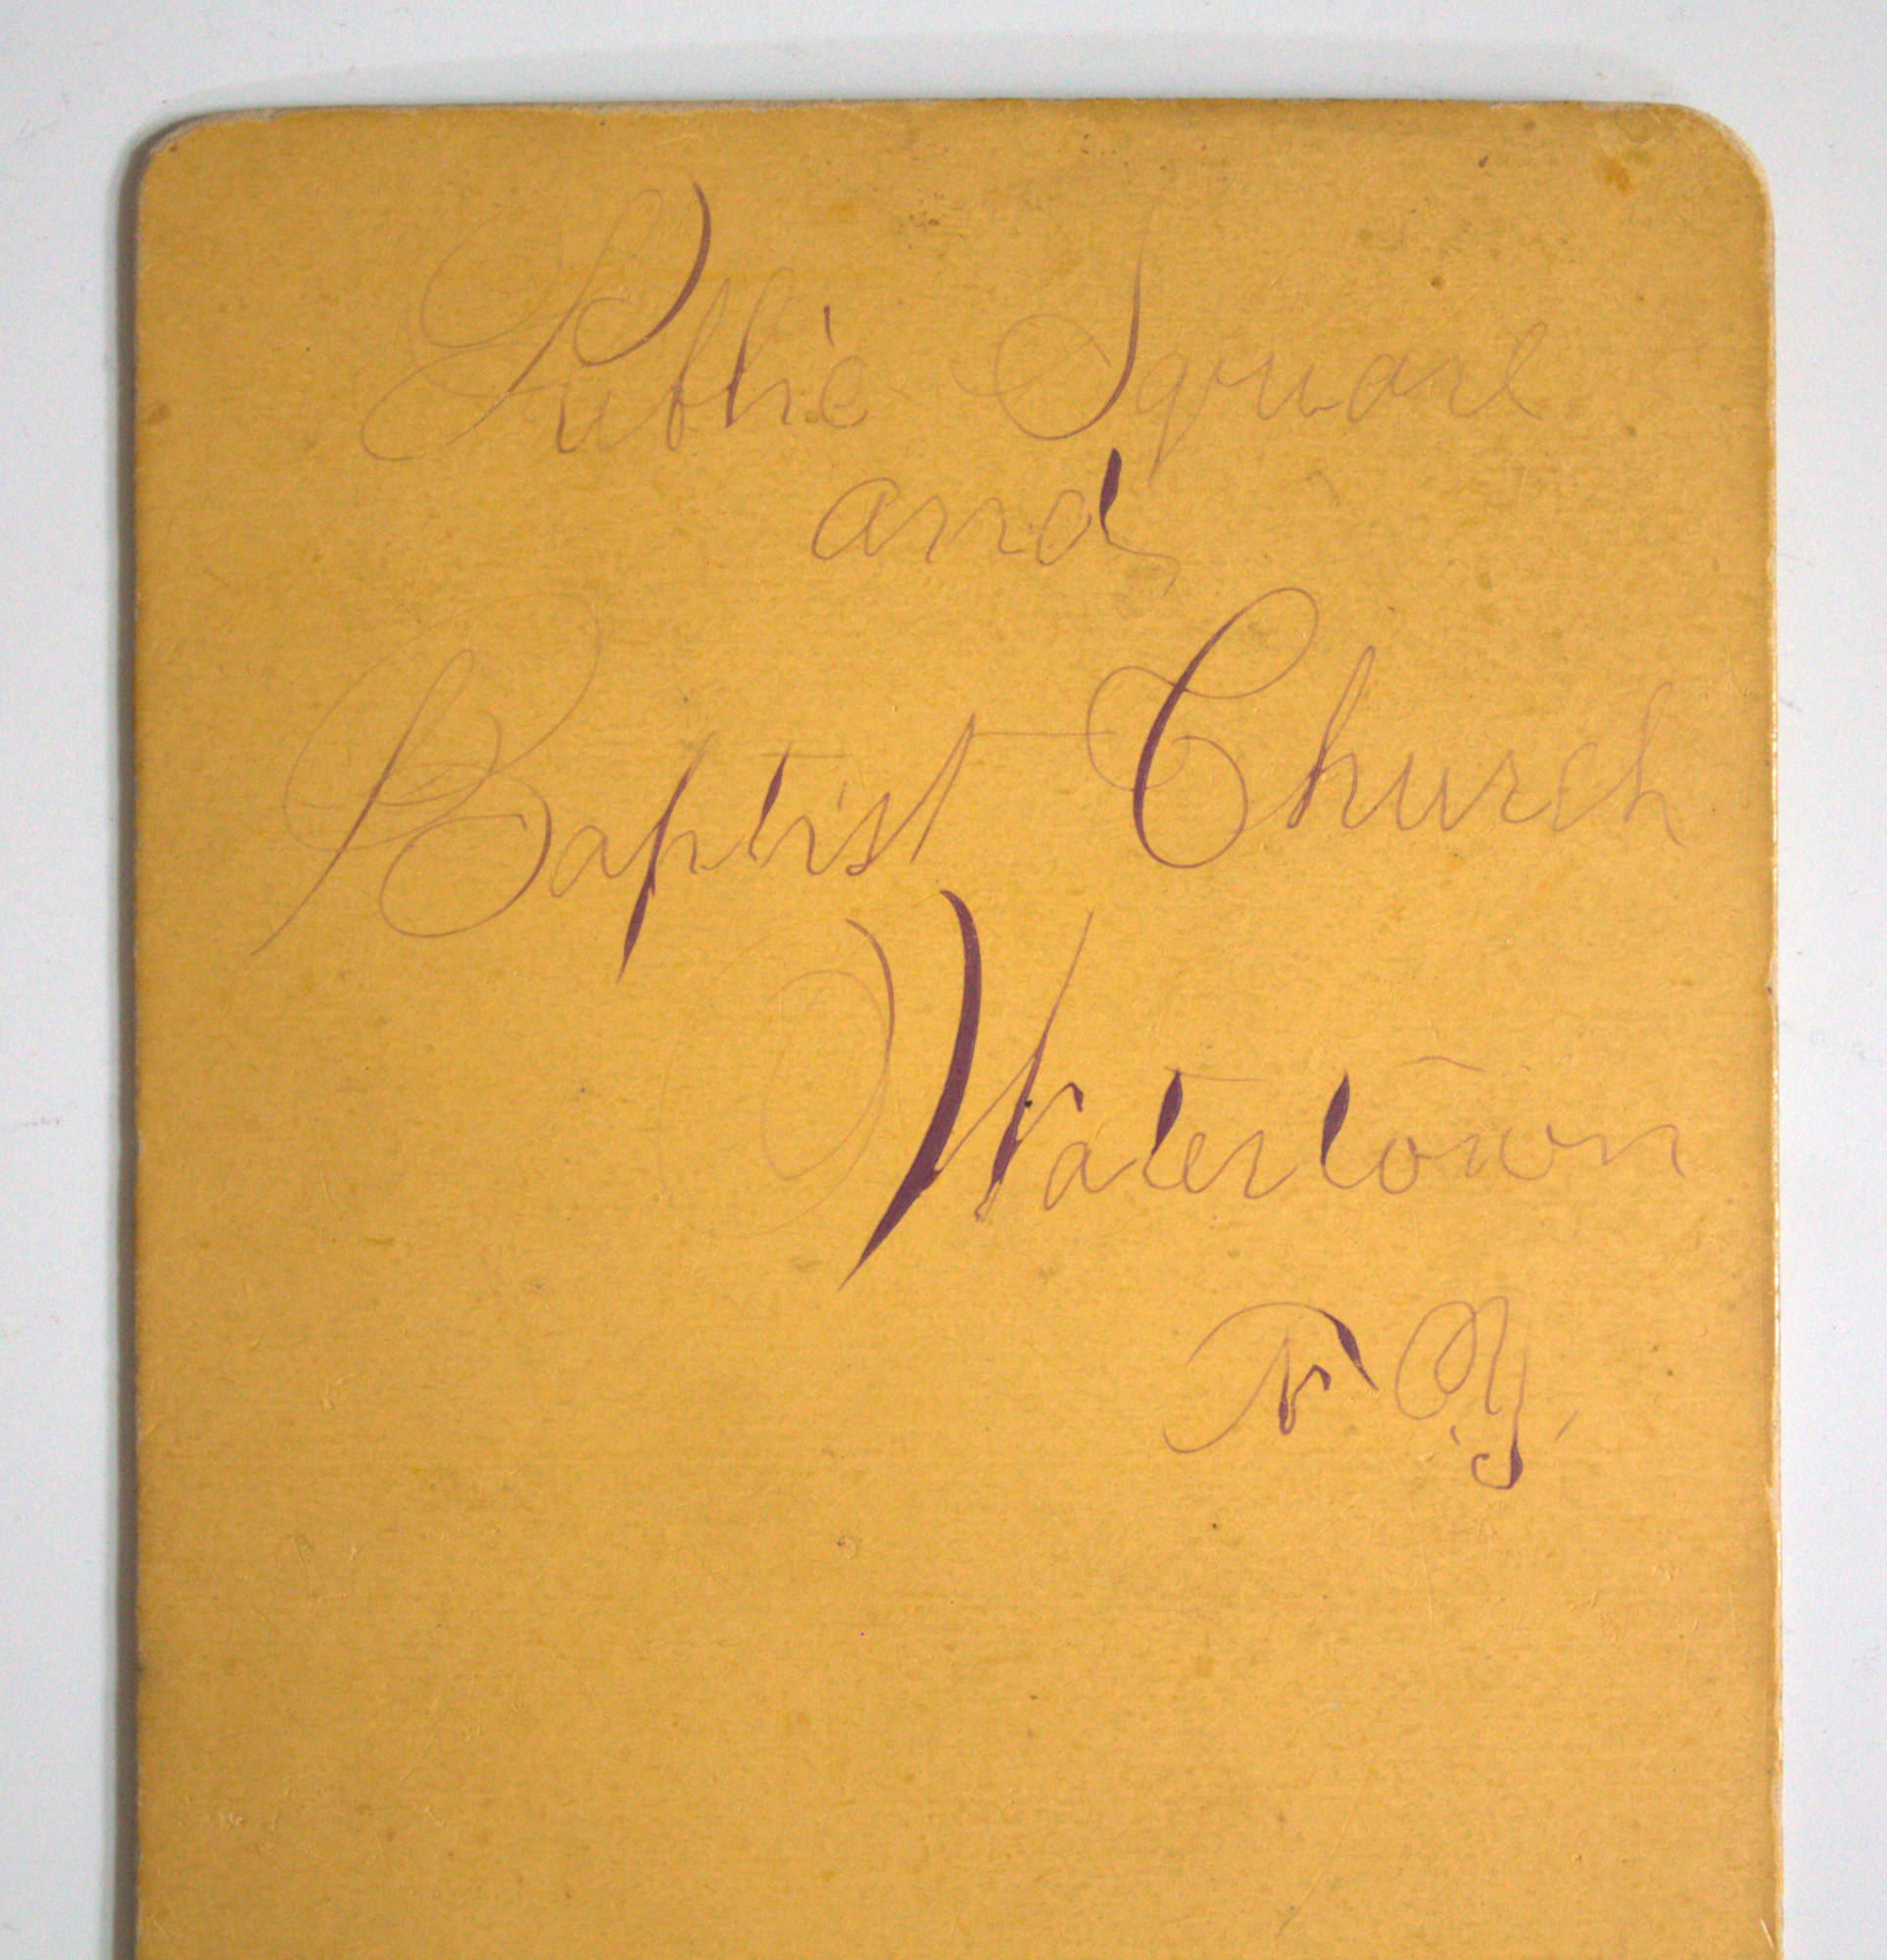 Public Square
and
Baptist Church
Watertown
N.Y.